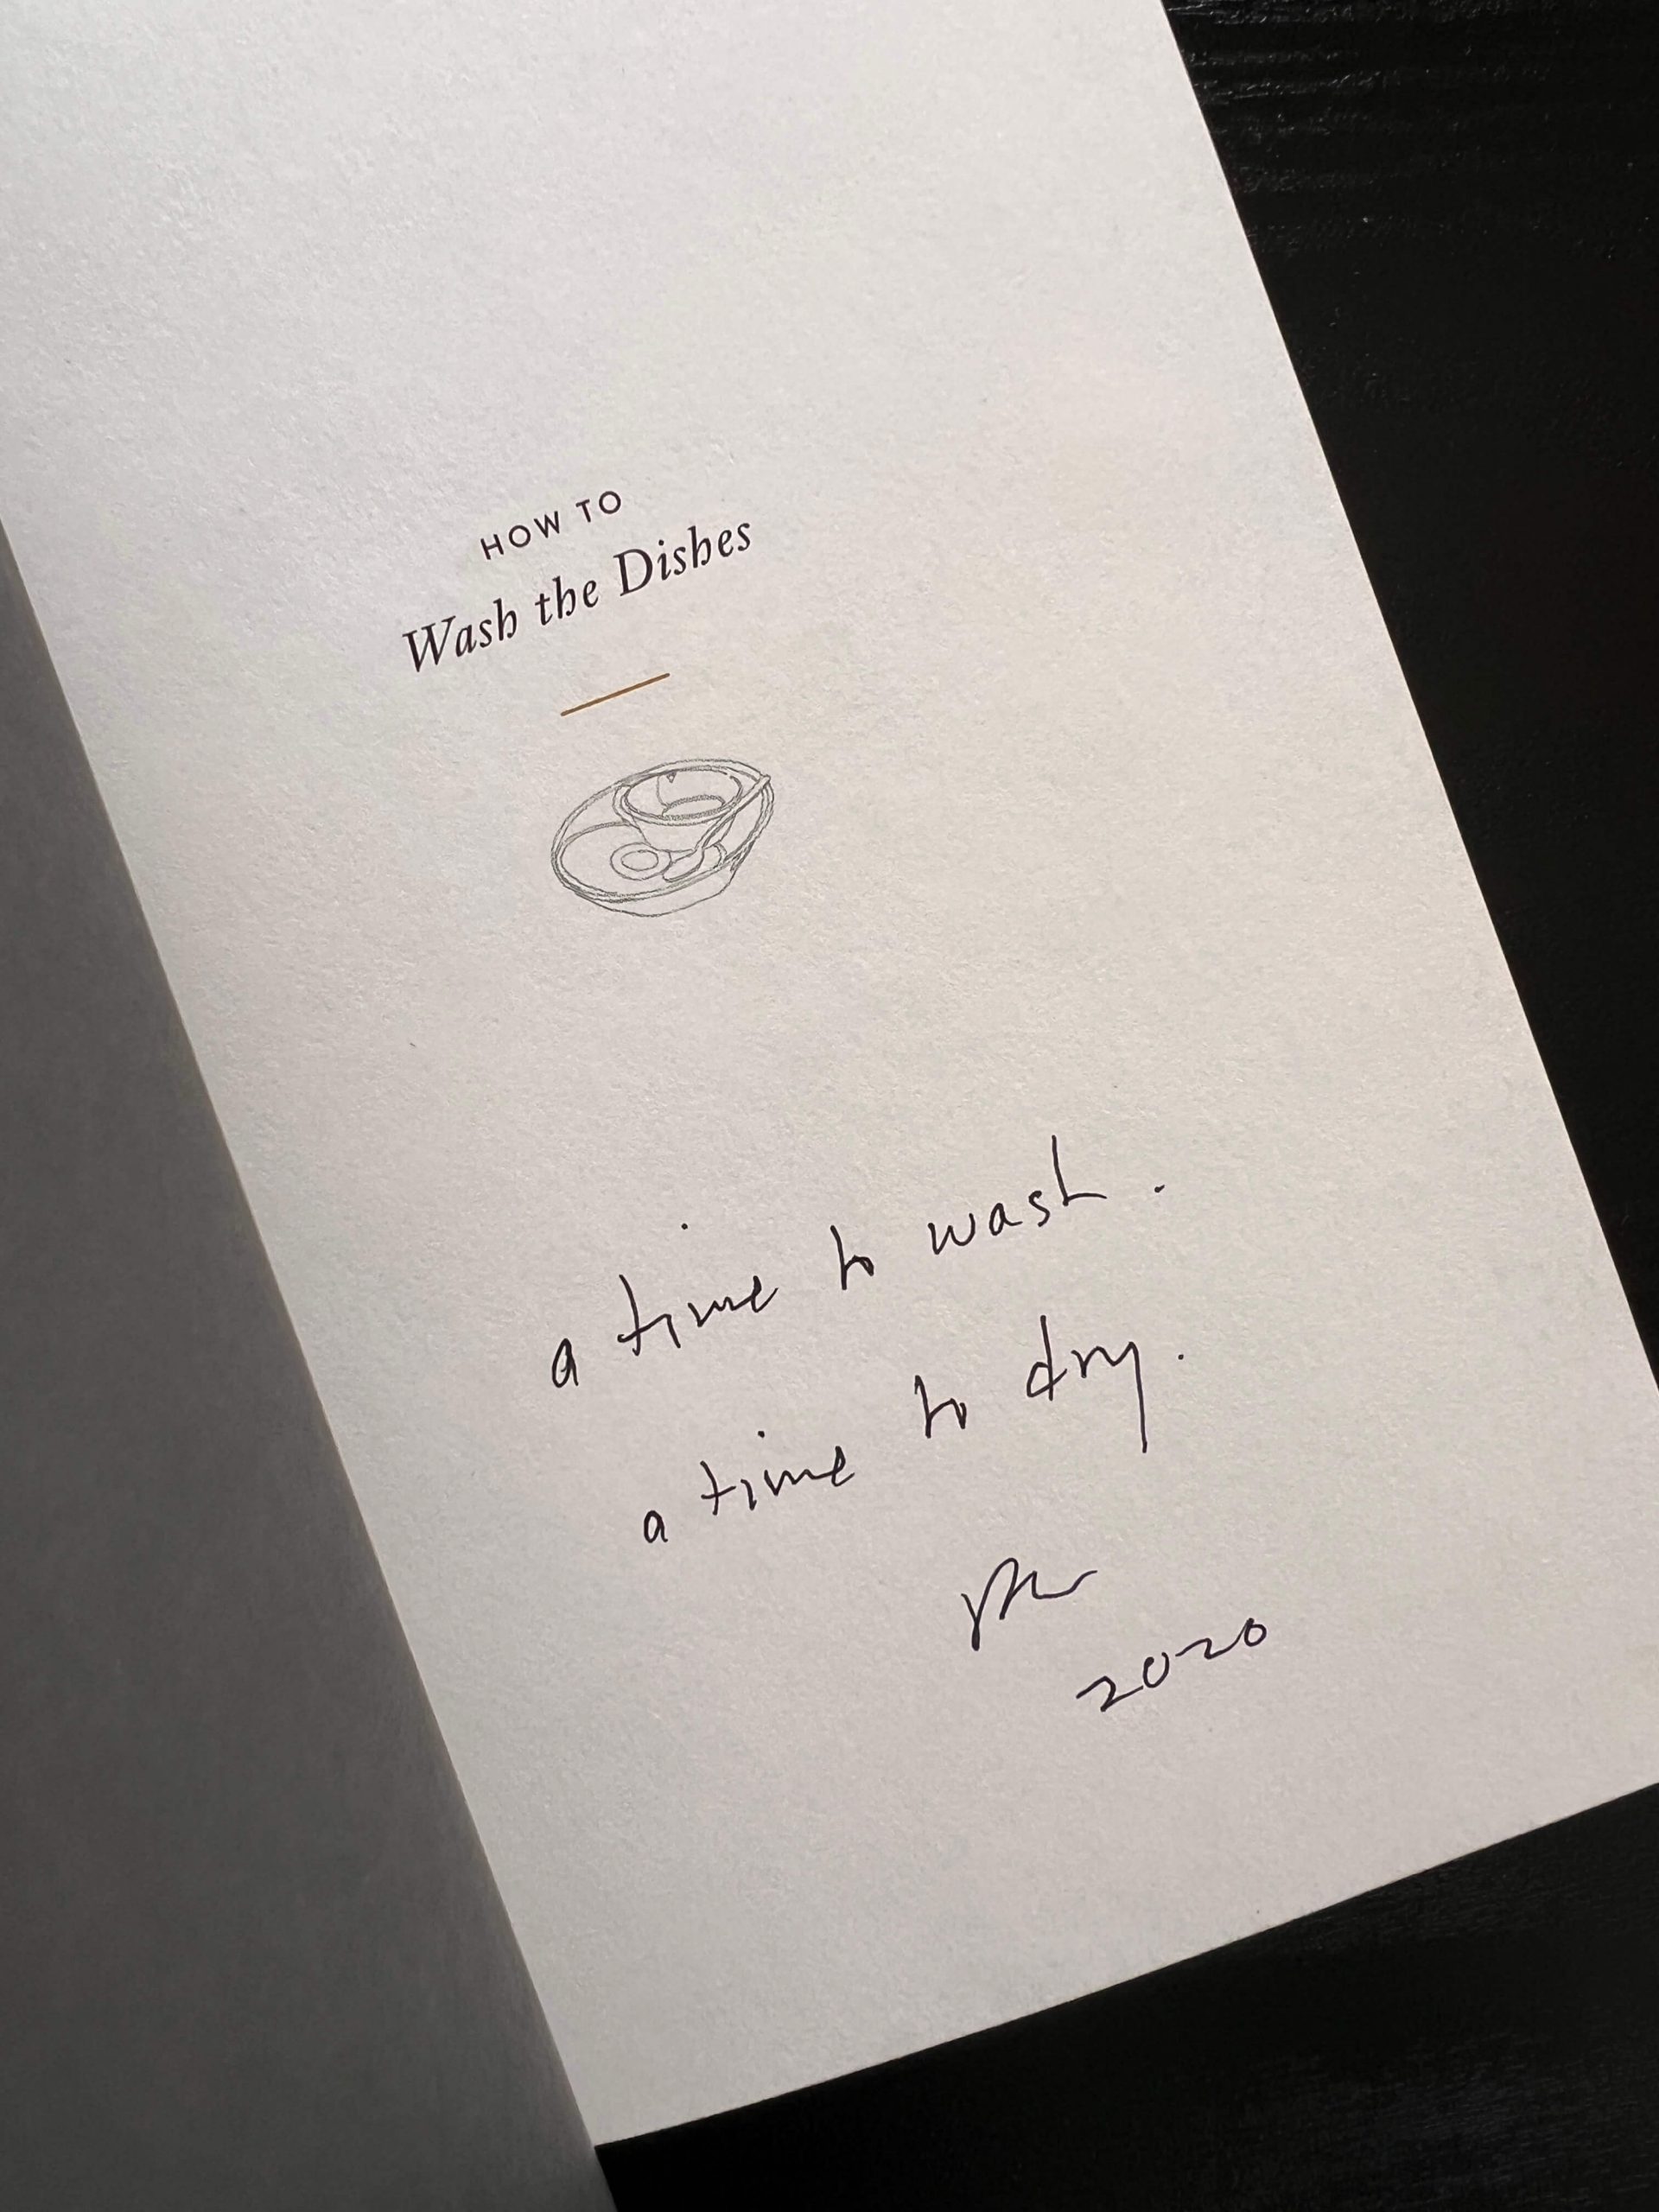 HOW TO
Wash the Dishes
a time to wash.
a time to dry.
2020